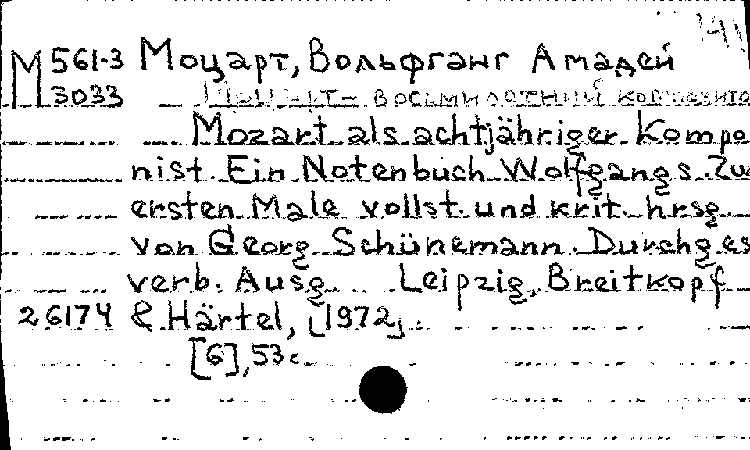 М 561-3 Моцарт, Вольфганг Амадей
3033 Моцарт - восьмилетний композито
Mozart als achtjähriger Kompo
nist. Ein Notenbuch Wolfgangs. Zu
ersten Male vollst. und krit. hrsg.
von Georg Schünemann. Durchges
verb. Ausg. Leipzig, Breitkopf
26174 & Härtel, [1972].
[6], 53 с.